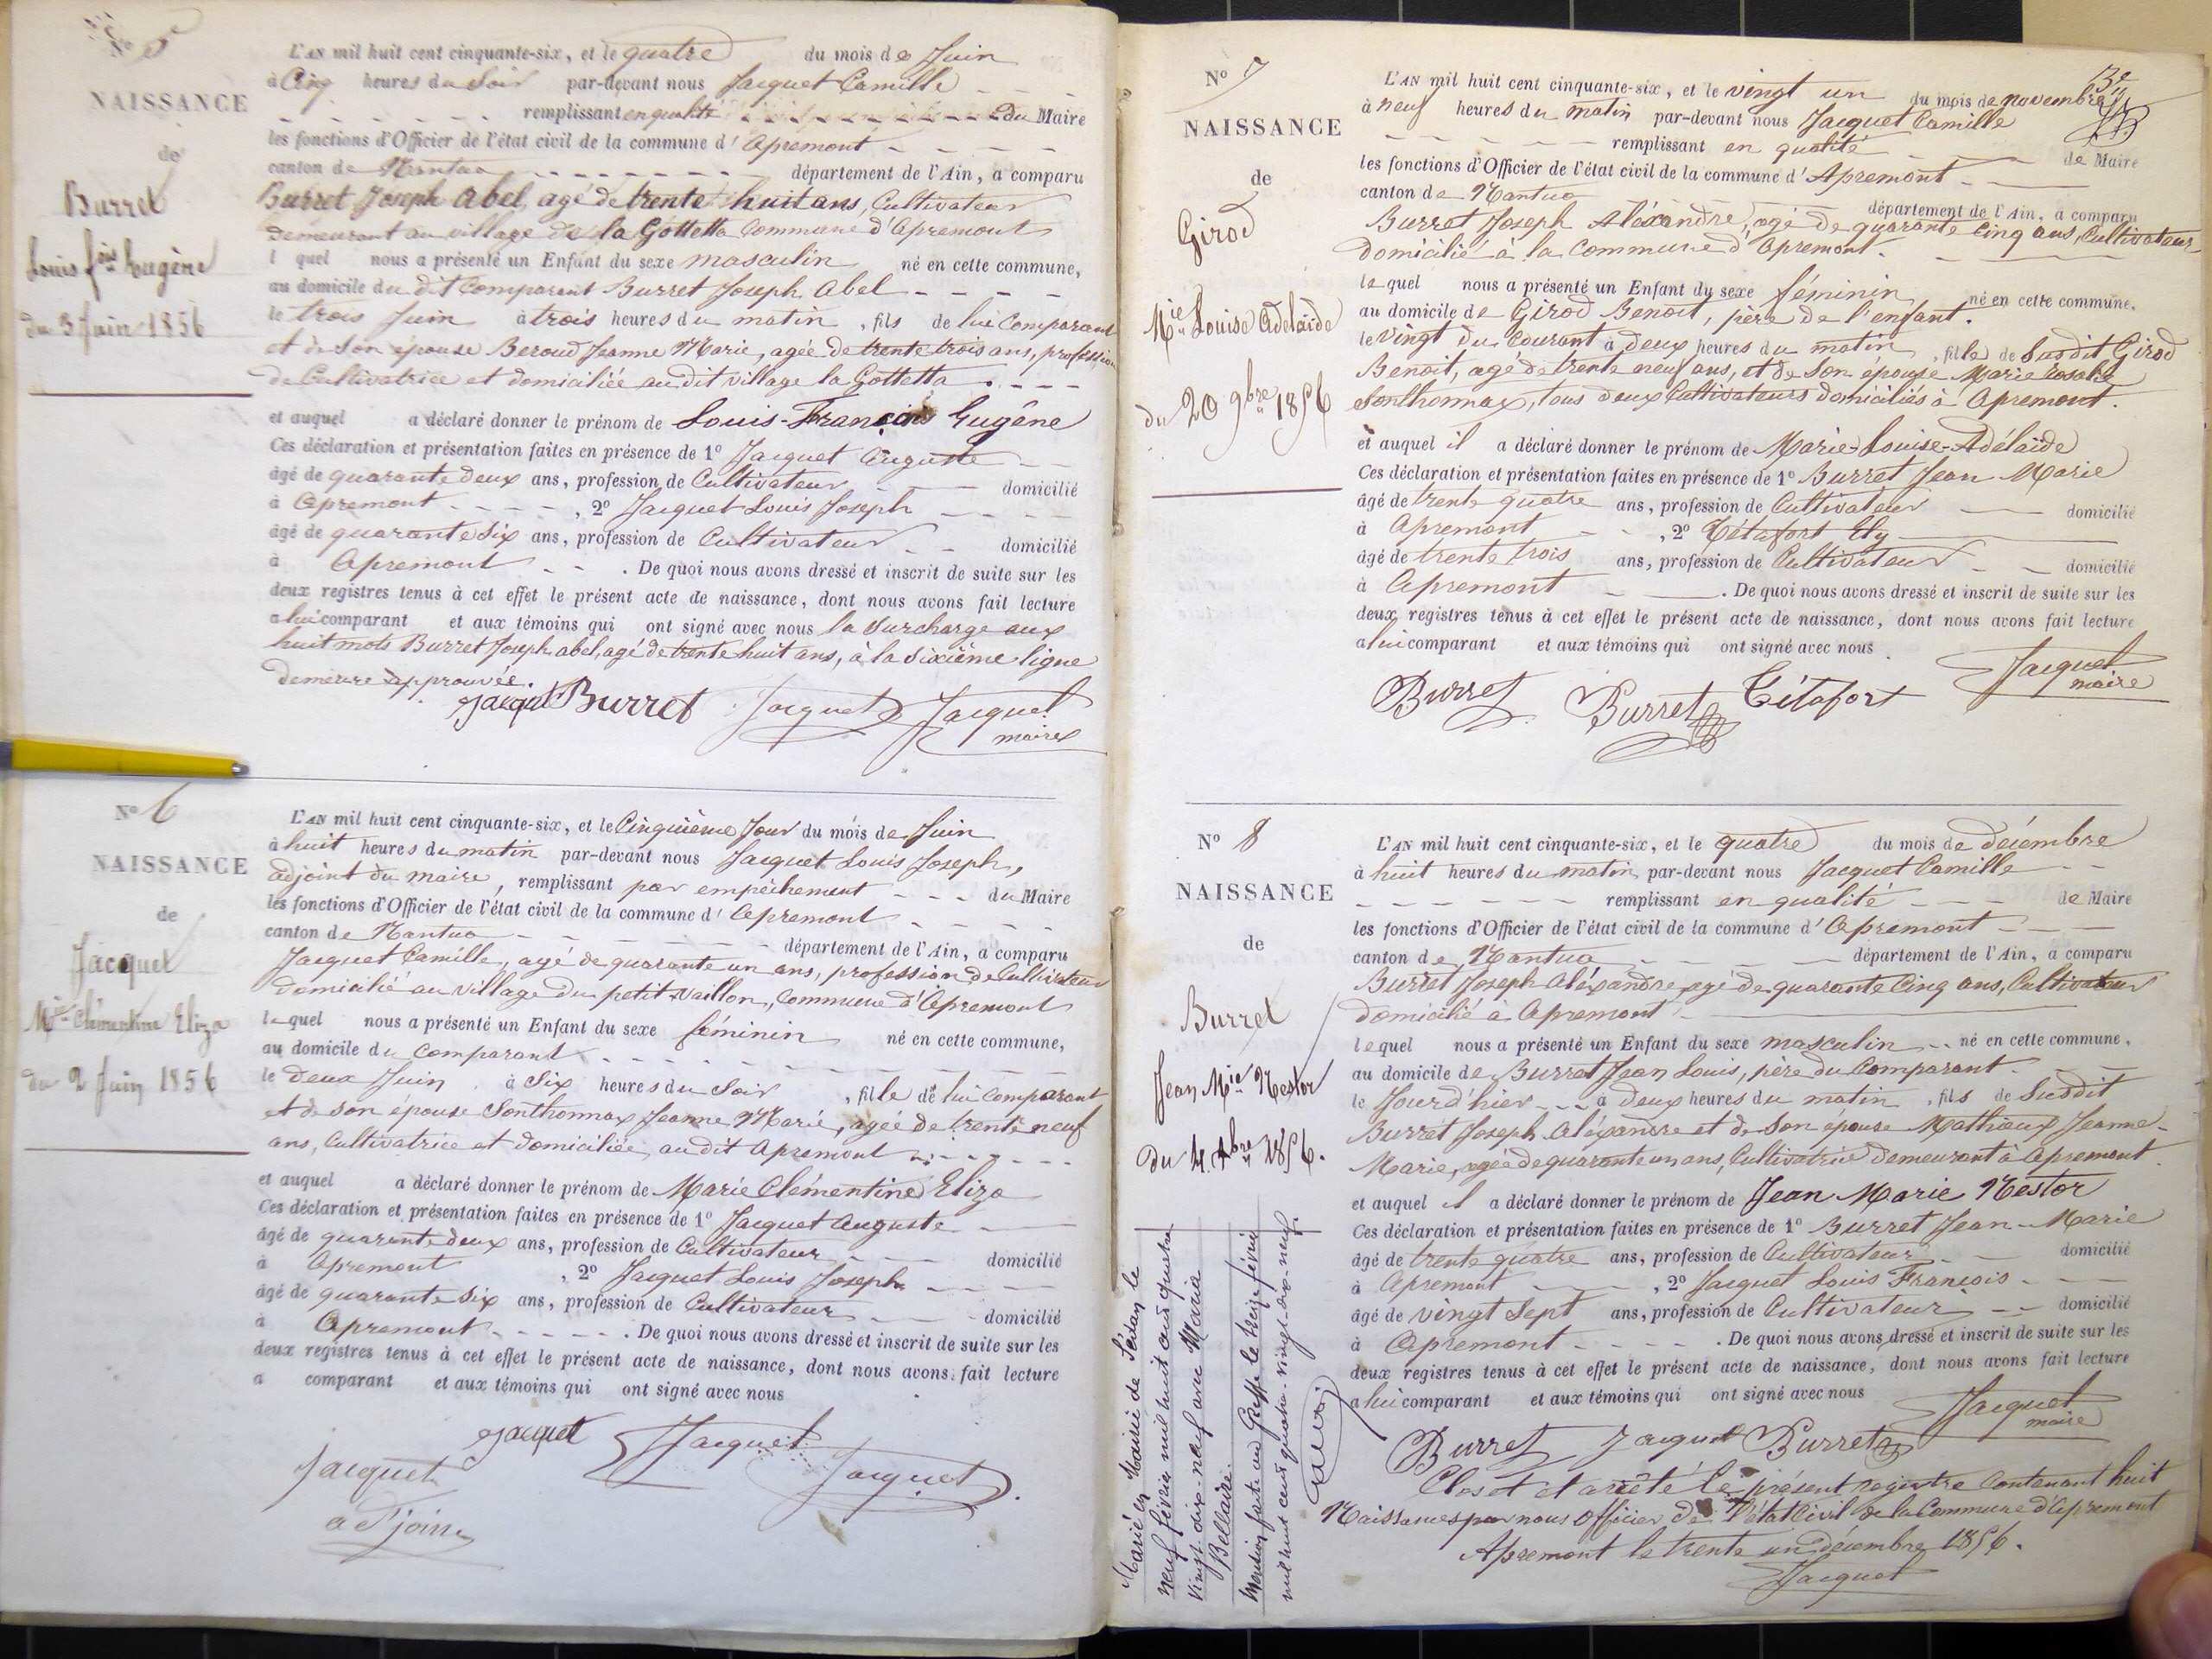 N° 5
NAISSANCE
de
Burret
Louis fçois Eugène
du 3 Juin 1856
L'AN mil huit cent cinquante-six, et le quatre du mois de Juin
à Cinq heures du Soir par-devant nous Jacquet Camille
remplissant en qualité du Maire
les fonctions d'Officier de l'état civil de la commune d'Apremont
canton de Nantua département de l'Ain, a comparu
Burret Joseph Abel, agé de trente huit ans, Cultivateur
demeurant au village de la Gottetta Commune d'Apremont
l quel nous a présenté un Enfant du sexe masculin né en cette commune,
au domicile du dit Comparant Burret Joseph Abel
le trois Juin à trois heures du matin, fils de lui Comparant
et de son épouse Beroud Jeanne Marie, agée de trente trois ans, profession
de Cultivatrice et domiciliée au dit village la Gottetta.
et auquel a déclaré donner le prénom de Louis-François Eugêne
Ces déclaration et présentation faites en présence de 1° Jacquet Auguste
âgé de quarante deux ans, profession de Cultivateur domicilié
à Apremont, 2° Jacquet Louis Joseph
âgé de quarante Six ans, profession de Cultivateur domicilié
à Apremont. De quoi nous avons dressé et inscrit de suite sur les
deux registres tenus à cet effet le présent acte de naissance, dont nous avons fait lecture
a lui comparant et aux témoins qui ont signé avec nous la Surcharge aux
huit mots Burret Joseph abel, agé de trente huit ans, à la Sixième ligne
demeure approuvée.
Jacquet Burret Jacquet Jacquet
maire
N° 6
NAISSANCE
de
Jacquet
Mie Clémentine Eliza
du 2 Juin 1856
L'AN mil huit cent cinquante-six, et le Cinquième Jour du mois de Juin
à huit heures du matin par-devant nous Jacquet Louis Joseph,
adjoint du maire, remplissant par empêchement du Maire
les fonctions d'Officier de l'état civil de la commune d'Apremont
canton de Nantua département de l'Ain, a comparu
Jacquet Camille, agé de quarante un ans, profession de Cultivateur
domicilié au village du petit Vaillon, Commune d'Apremont
lequel nous a présenté un Enfant du sexe féminin né en cette commune,
au domicile du Comparant
le Deux Juin à Six heures du Soir, fille de lui Comparant
et de son épouse Sonthonnax Jeanne Marie, agée de trente neuf
ans, Cultivatrice et domiciliée au dit Apremont
et auquel a déclaré donner le prénom de Marie Clémentine Eliza
Ces déclaration et présentation faites en présence de 1° Jacquet Auguste
âgé de quarante deux ans, profession de Cultivateur domicilié
à Apremont, 2° Jacquet Louis Joseph
âgé de quarante Six ans, profession de Cultivateur domicilié
à Apremont. De quoi nous avons dressé et inscrit de suite sur les
deux registres tenus à cet effet le présent acte de naissance, dont nous avons fait lecture
a comparant et aux témoins qui ont signé avec nous
Jacquet Jacquet Jacquet Jacquet
adjoint
N° 7
NAISSANCE
de
Girod
Mie Louise Adelaïde
du 20 9bre 1856
L'AN mil huit cent cinquante-six, et le vingt un du mois de novembre
à neuf heures du matin par-devant nous Jacquet Camille
remplissant en qualité de Maire
les fonctions d'Officier de l'état civil de la commune d'Apremont
canton de Nantua département de l'Ain, a comparu
Burret Joseph Aléxandre, agé de quarante Cinq ans, Cultivateur,
domicilié à la Commune d'Apremont.
lequel nous a présenté un Enfant du sexe féminin né en cette commune,
au domicile de Girod Benoit, père de l'enfant.
le vingt du Courant à deux heures du matin, fille de Susdit Girod
Benoit, agé de trente neuf ans, et de Son épouse Marie rosalie
Sonthonnax, tous deux Cultivateurs domiciliés à Apremont.
et auquel il a déclaré donner le prénom de Marie-Louise-Adélaïde
Ces déclaration et présentation faites en présence de 1° Burret Jean Marie
âgé de trente quatre ans, profession de Cultivateur domicilié
à Apremont, 2° Tétafort Ely
âgé de trente trois ans, profession de Cultivateur domicilié
à Apremont. De quoi nous avons dressé et inscrit de suite sur les
deux registres tenus à cet effet le présent acte de naissance, dont nous avons fait lecture
a lui comparant et aux témoins qui ont signé avec nous
Burret Burret Tétafort Jacquet
maire
N° 8
NAISSANCE
de
Burret
Jean Mie Nestor
du 4. Xbre 1856.
L'AN mil huit cent cinquante-six, et le quatre du mois de décembre
à huit heures du matin par-devant nous Jacquet Camille
remplissant en qualité de Maire
les fonctions d'Officier de l'état civil de la commune d'Apremont
canton de Nantua département de l'Ain, a comparu
Burret Joseph Aléxandre, agé de quarante Cinq ans, Cultivateur
domicilié à Apremont
lequel nous a présenté un Enfant du sexe masculin né en cette commune,
au domicile de Burret Jean Louis, père du Comparant.
le Jour d'hier à deux heures du matin, fils de Susdit
Burret Joseph Aléxandre et de Son épouse Mathieux Jeanne-
Marie, agée de quarante un ans, Cultivatrice demeurant à Apremont.
et auquel il a déclaré donner le prénom de Jean Marie Nestor
Ces déclaration et présentation faites en présence de 1° Burret Jean-Marie
âgé de trente quatre ans, profession de Cultivateur domicilié
à Apremont, 2° Jacquet Louis François
âgé de vingt Sept ans, profession de Cultivateur domicilié
à Apremont. De quoi nous avons dressé et inscrit de suite sur les
deux registres tenus à cet effet le présent acte de naissance, dont nous avons fait lecture
a lui comparant et aux témoins qui ont signé avec nous
Burret Jacquet Burret Jacquet
maire
Clos et arrêté le présent registre Contenant huit
Naissances par nous Officier de l'état Civil de la Commune d'Apremont
Apremont le trente un décembre 1856.
Jacquet
Marié en Mairie de le
neuf février mil huit cent quatre
vingt-dix-neuf avec Maria
Bellaire.
Mention faite au Greffe le treize février
mil huit cent quatre-vingt-dix-neuf.